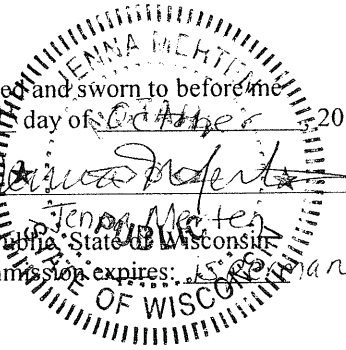 JENNA MERTEN
ed and sworn to before me
day of October, 20
Jenna Merten
Jenna Merten
PUBLIC
Public, State of Wisconsin
mmission expires: is perman
STATE OF WISCONSIN